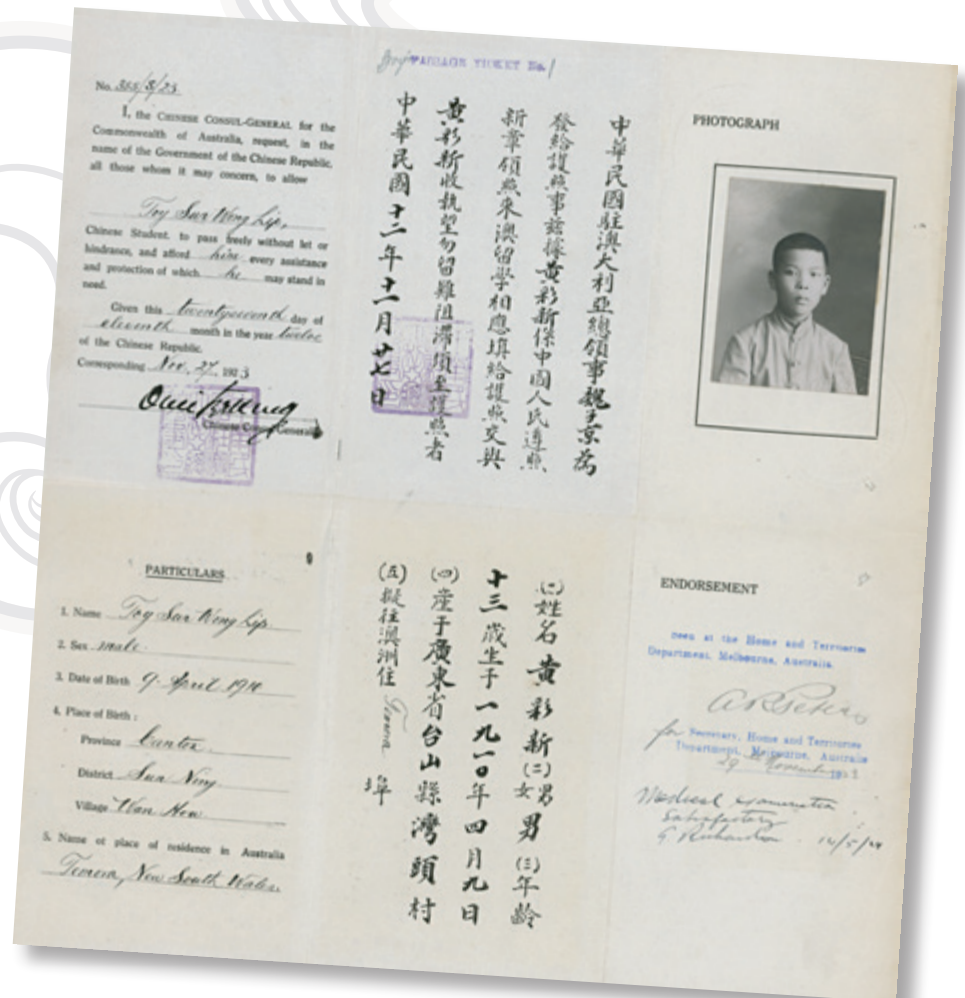 No. 355/3/23
I, the CHINESE CONSUL-GENERAL for the
Commonwealth of Australia, request, in the
name of the Government of the Chinese Republic,
all those whom it may concern, to allow
Toy Sun Wing Lip,
Chinese Student, to pass freely without let or
hindrance, and afford him every assistance
and protection of which he may stand in
need.
Given this twentyseventh day of
eleventh month in the year twelve
of the Chinese Republic.
Corresponding Nov. 27, 1923
Chinese Consul-General
PASSAGE TICKET No.
中華民國駐澳大利亞總領事魏子京為
發給護照事茲據黃彩新係中國人民遵照
新章領照來澳留學相應填給護照交與
黃彩新收執望勿留難阻滯須至護照者
中華民國十二年十一月廿七日
PHOTOGRAPH
PARTICULARS
1. Name Toy Sun Wing Lip
2. Sex male
3. Date of Birth 9 April 1910
4. Place of Birth :
Province Canton
District Sun Ning
Village Wan Hew
5. Name of place of residence in Australia
Temora, New South Wales
(一)姓名 黃彩新 (二)男女 男 (三)年齡
十三歲生于一九一〇年四月九日
(四)產于廣東省台山縣灣頭村
(五)擬往澳洲住 Temora 埠
ENDORSEMENT
Seen at the Home and Territories
Department, Melbourne, Australia.
for Secretary, Home and Territories
Department, Melbourne, Australia
29 November 1923
Medical examination
Satisfactory
G. Richardson 14/5/24